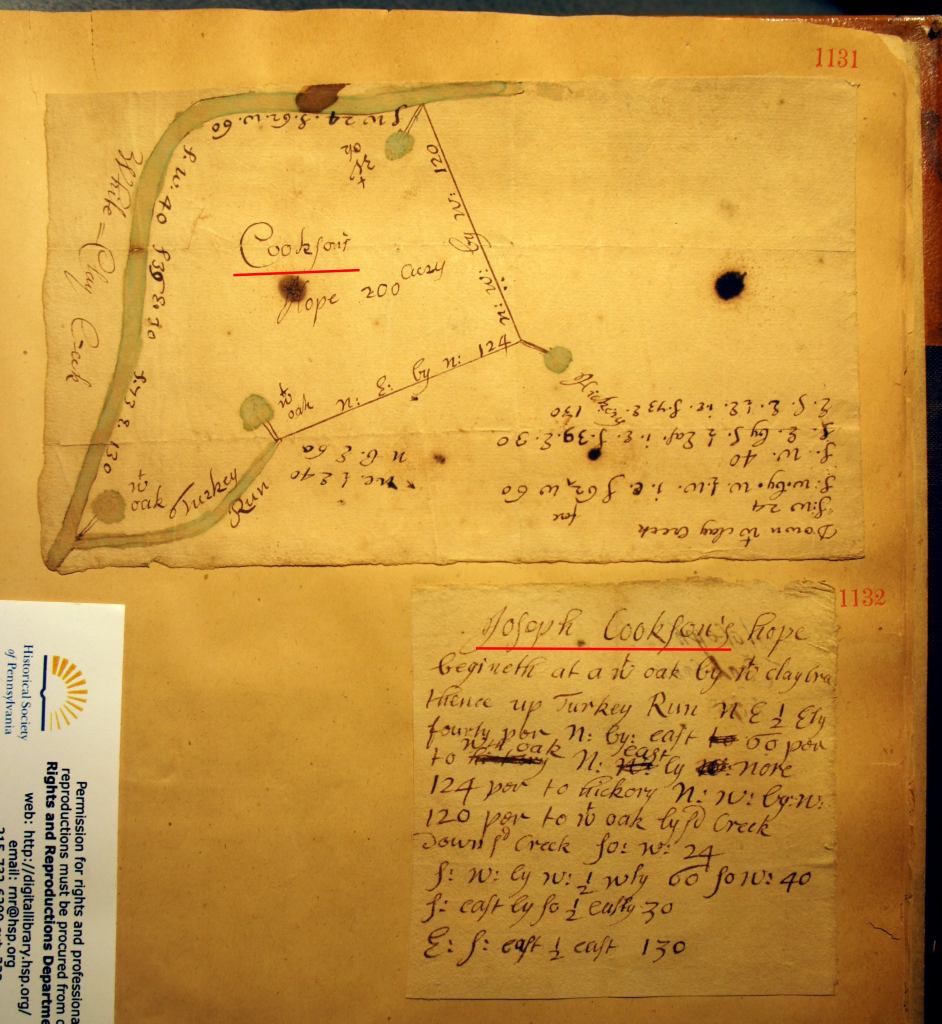 1131
S W 24 . S . 62 . W . 60
wt oak
White = Clay Creek
S. W. 40
S 39 E. 30
S. 73 E 130
Cookson's
Hope 200 Acers
n: w: by w: 120
n: E: by n: 124
Hickory
wt oak
wt oak
Turkey Run
n E 60
130
E. S. E. ½ E ie. S. 73 E.
S. E. by S. ½ Eas i. E. S. 39. E. 30
S. W. 40
S. W. by . W. ½ W. i. e. S 62, W 60
S: W 24
Down wt clay Creek
1132
Joseph Cookson's hope
begineth at a wt oak by wt clay
thence up Turkey Run N E ½ Ely
fourty per N: by: east 60 per
to oak N: east by nore
124 per to hickory N: W: by: W:
120 per to wt oak by sd Creek
Down sd Creek So: W: 24
S: W: by W: ½ wly 60 So W: 40
S: east by So ½ easty 30
E: S: east ½ east 130
Historical Society
of Pennsylvania
Permission for rights and professiona
reproductions must be procured from
Rights and Reproductions Departme
web: http://digitallibrary.hsp.org/
email: rnr@hsp.org